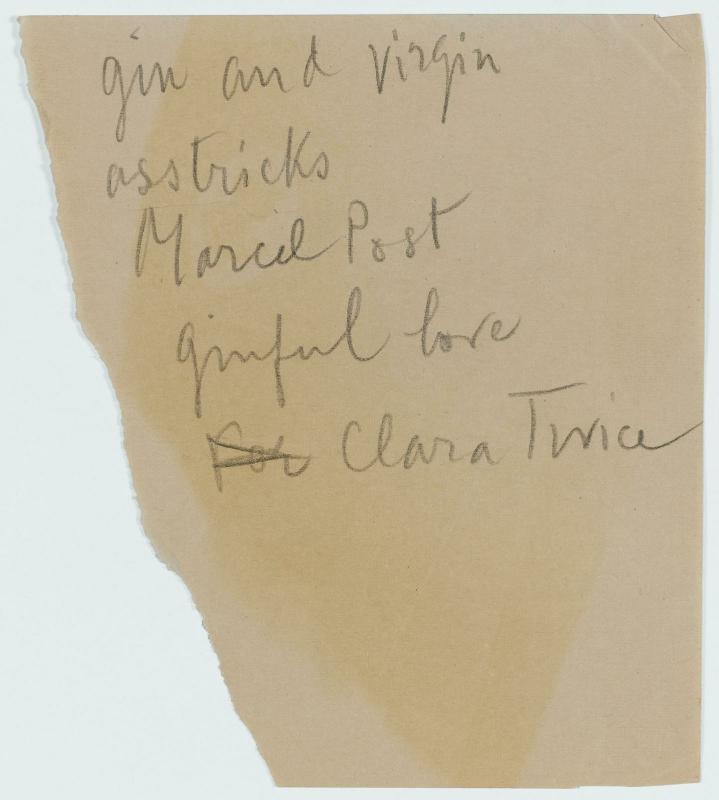 gin and virgin
asstricks
Marcel Post
ginful love
for Clara Twice